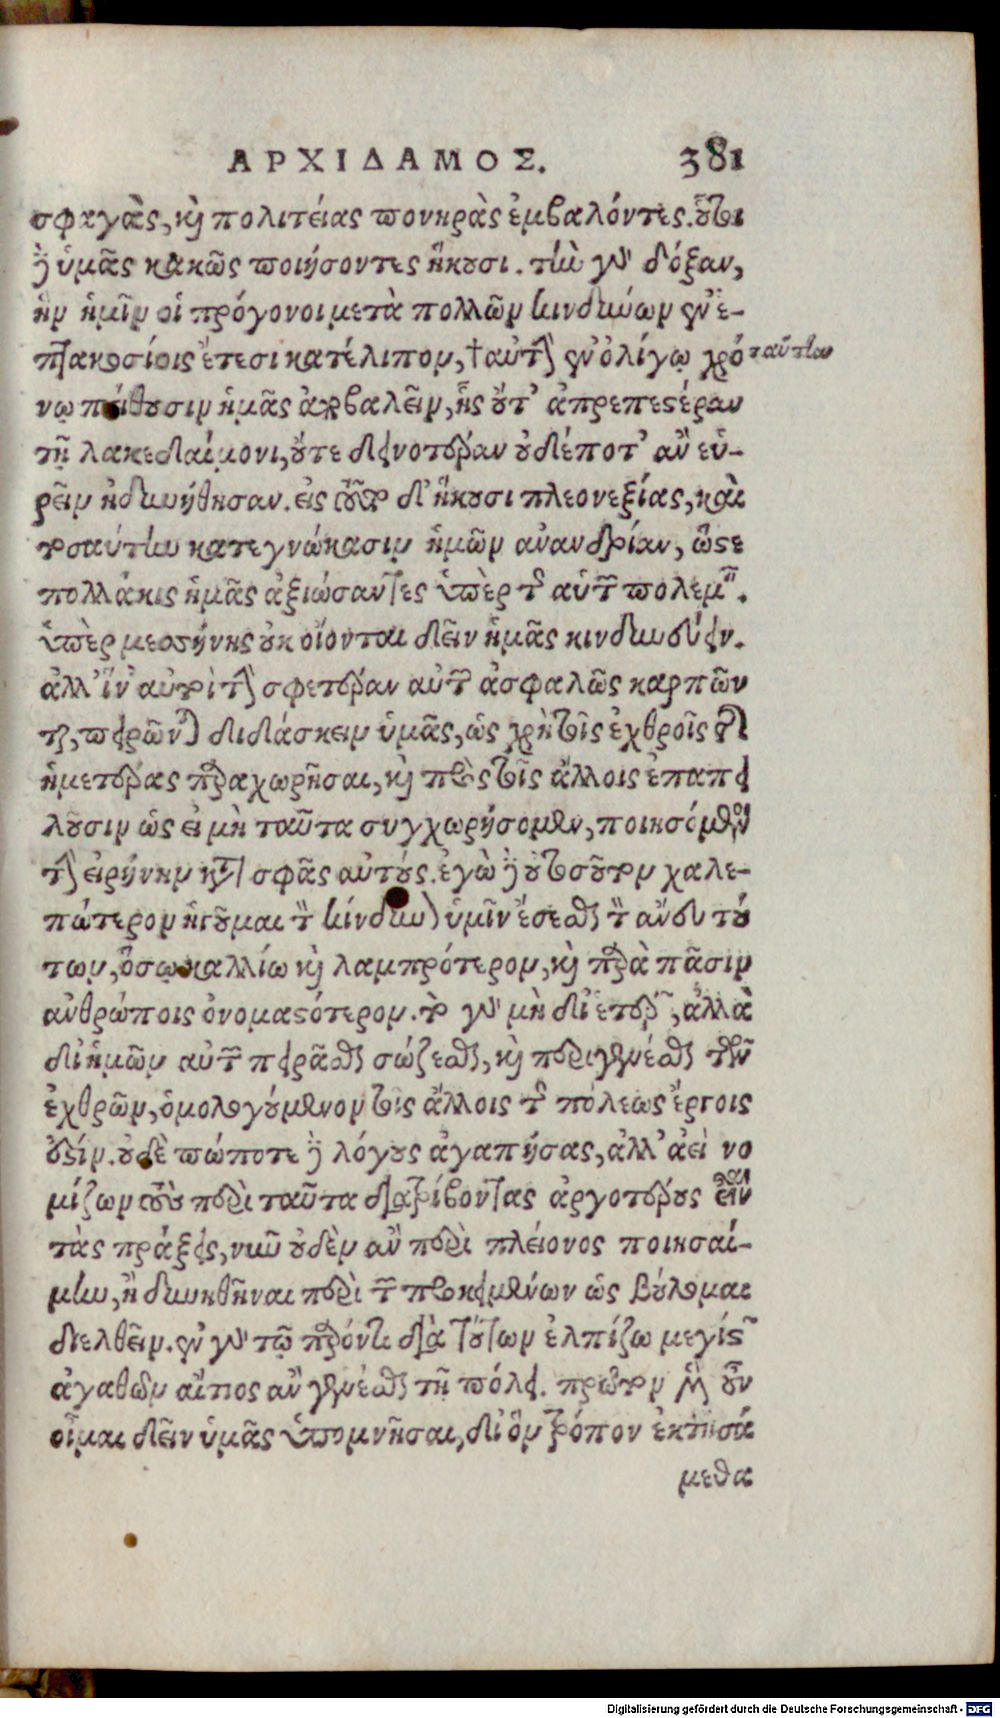 ΑΡΧΙΔΑΜΟΣ. 381
σφαγὰς, καὶ πολιτείας πονηρὰς ἐμβαλόντες. οὗτοι
γὰρ ὑμᾶς κακῶς ποιήσοντες ἥκουσι. τὴν γὰρ δόξαν,
ἣν ἡμῖν οἱ πρόγονοι μετὰ πολλῶν κινδύνων ἐν ἑ-
πτακοσίοις ἔτεσι κατέλιπον, †αὐτὴν ἐν ὀλίγῳ χρό
ταύτην
νῳ πείθουσιν ἡμᾶς ἀποβαλεῖν, ἧς οὔτ' ἀπρεπεστέραν
τῇ λακεδαίμονι, οὔτε δεινοτέραν οὐδέποτ' ἂν εὑ-
ρεῖν ἠδυνήθησαν. εἰς τοῦτο δ' ἥκουσι πλεονεξίας, καὶ
τοσαύτην κατεγνώκασιν ἡμῶν ἀνανδρίαν, ὥστε
πολλάκις ἡμᾶς ἀξιώσαντες ὑπὲρ τῆς αὑτῶν πολεμεῖν.
ὑπὲρ μεσσήνης οὐκ οἴονται δεῖν ἡμᾶς κινδυνεύειν.
ἀλλ' ἵν' αὐτοὶ τὴν σφετέραν αὐτῶν ἀσφαλῶς καρπῶν
ται, πειρῶνται διδάσκειν ὑμᾶς, ὡς χρὴ τοῖς ἐχθροῖς τῆς
ἡμετέρας παραχωρῆσαι, καὶ πρὸς τοῖς ἄλλοις ἐπαπει
λοῦσιν ὡς εἰ μὴ ταῦτα συγχωρήσομεν, ποιησόμενοι
τὴν εἰρήνην κατὰ σφᾶς αὐτούς. ἐγὼ δ' οὐ τοσοῦτον χαλε-
πώτερον ἡγοῦμαι τὸν κίνδυνον ὑμῖν ἔσεσθαι τὸν ἄνευ τού
των, ὅσῳ καλλίω καὶ λαμπρότερον, καὶ παρὰ πᾶσιν
ἀνθρώποις ὀνομαστότερον. τὸ γὰρ μὴ δι' ἑτέρων, ἀλλὰ
δι' ἡμῶν αὐτῶν πειρᾶσθαι σώζεσθαι, καὶ περιγενέσθαι τῶν
ἐχθρῶν, ὁμολογούμενον τοῖς ἄλλοις τῆς πόλεως ἔργοις
ἐστίν. οὐδὲ πώποτε δὲ λόγους ἀγαπήσας, ἀλλ' ἀεὶ νο
μίζων τοὺς περὶ ταῦτα διατρίβοντας ἀργοτέρους εἶναι
τὰς πράξεις, νῦν οὐδὲν ἂν περὶ πλείονος ποιησαί-
μην, ἢ δυνηθῆναι περὶ τῶν προκειμένων ὡς βούλομαι
διελθεῖν. ἐν γὰρ τῷ παρόντι διὰ τούτων ἐλπίζω μεγίστων
ἀγαθῶν αἴτιος ἂν γενέσθαι τῇ πόλει. πρῶτον μὲν οὖν
οἶμαι δεῖν ὑμᾶς ὑπομνῆσαι, δι' ὃν τρόπον ἐκτησά
μεθα
Digitalisierung gefördert durch die Deutsche Forschungsgemeinschaft - DFG